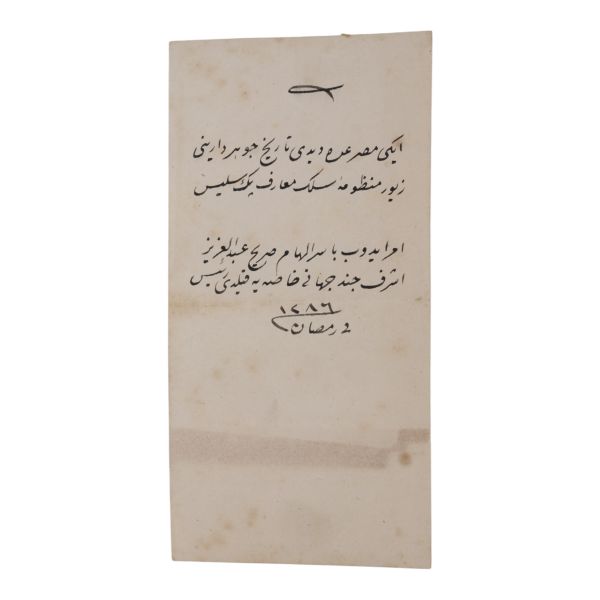 ایكی مصرعده دیدی تاریخ جوهردارینی
زیور منظومهٔ سلك معارف پك سلیس
امر ایدوب با سر الهام صریح عبدالعزیز
اشرف جند جهانی خاصه یه قیلدی رئیس
١٢٨٦
فی رمضان